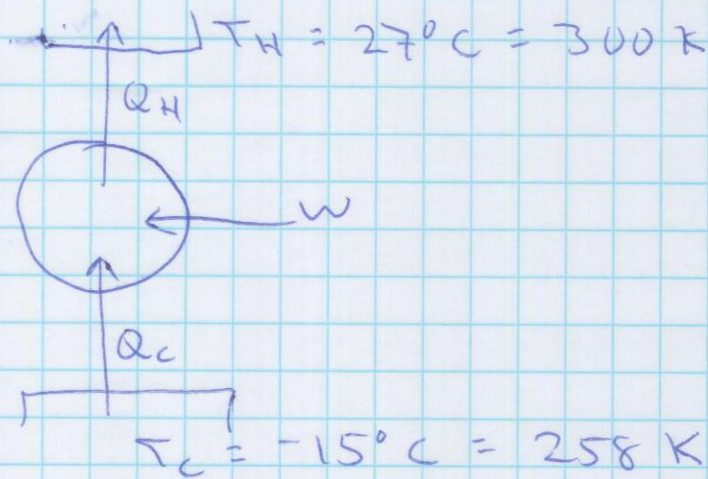 T_H = 27°C = 300 K
Q_H
W
Q_C
T_C = -15°C = 258 K